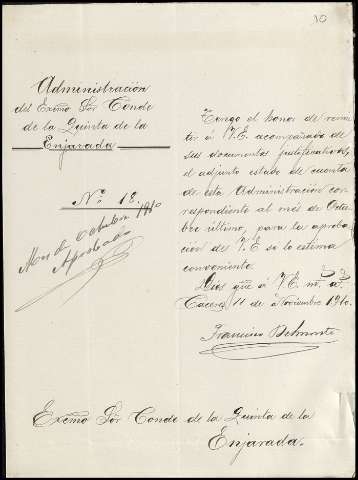 10
Administración
del Excmo Sor Conde
de la Quinta de la
Enjarada
Nº 18.
Mes de Octubre 1910
Aprobado
Tengo el honor de remi-
tir á V.E. acompañado de
sus documentos justificativos,
el adjunto estado de cuenta
de esta Administración cor-
respondiente al més de Octu-
bre último, para la aproba-
ción de V.E. si lo estima
conveniente.
Dios gue á V.E. m. a.
Caceres 11 de Noviembre 1910.
Francisco Belmonte
Excmo Sor Conde de la Quinta de la
Enjarada.